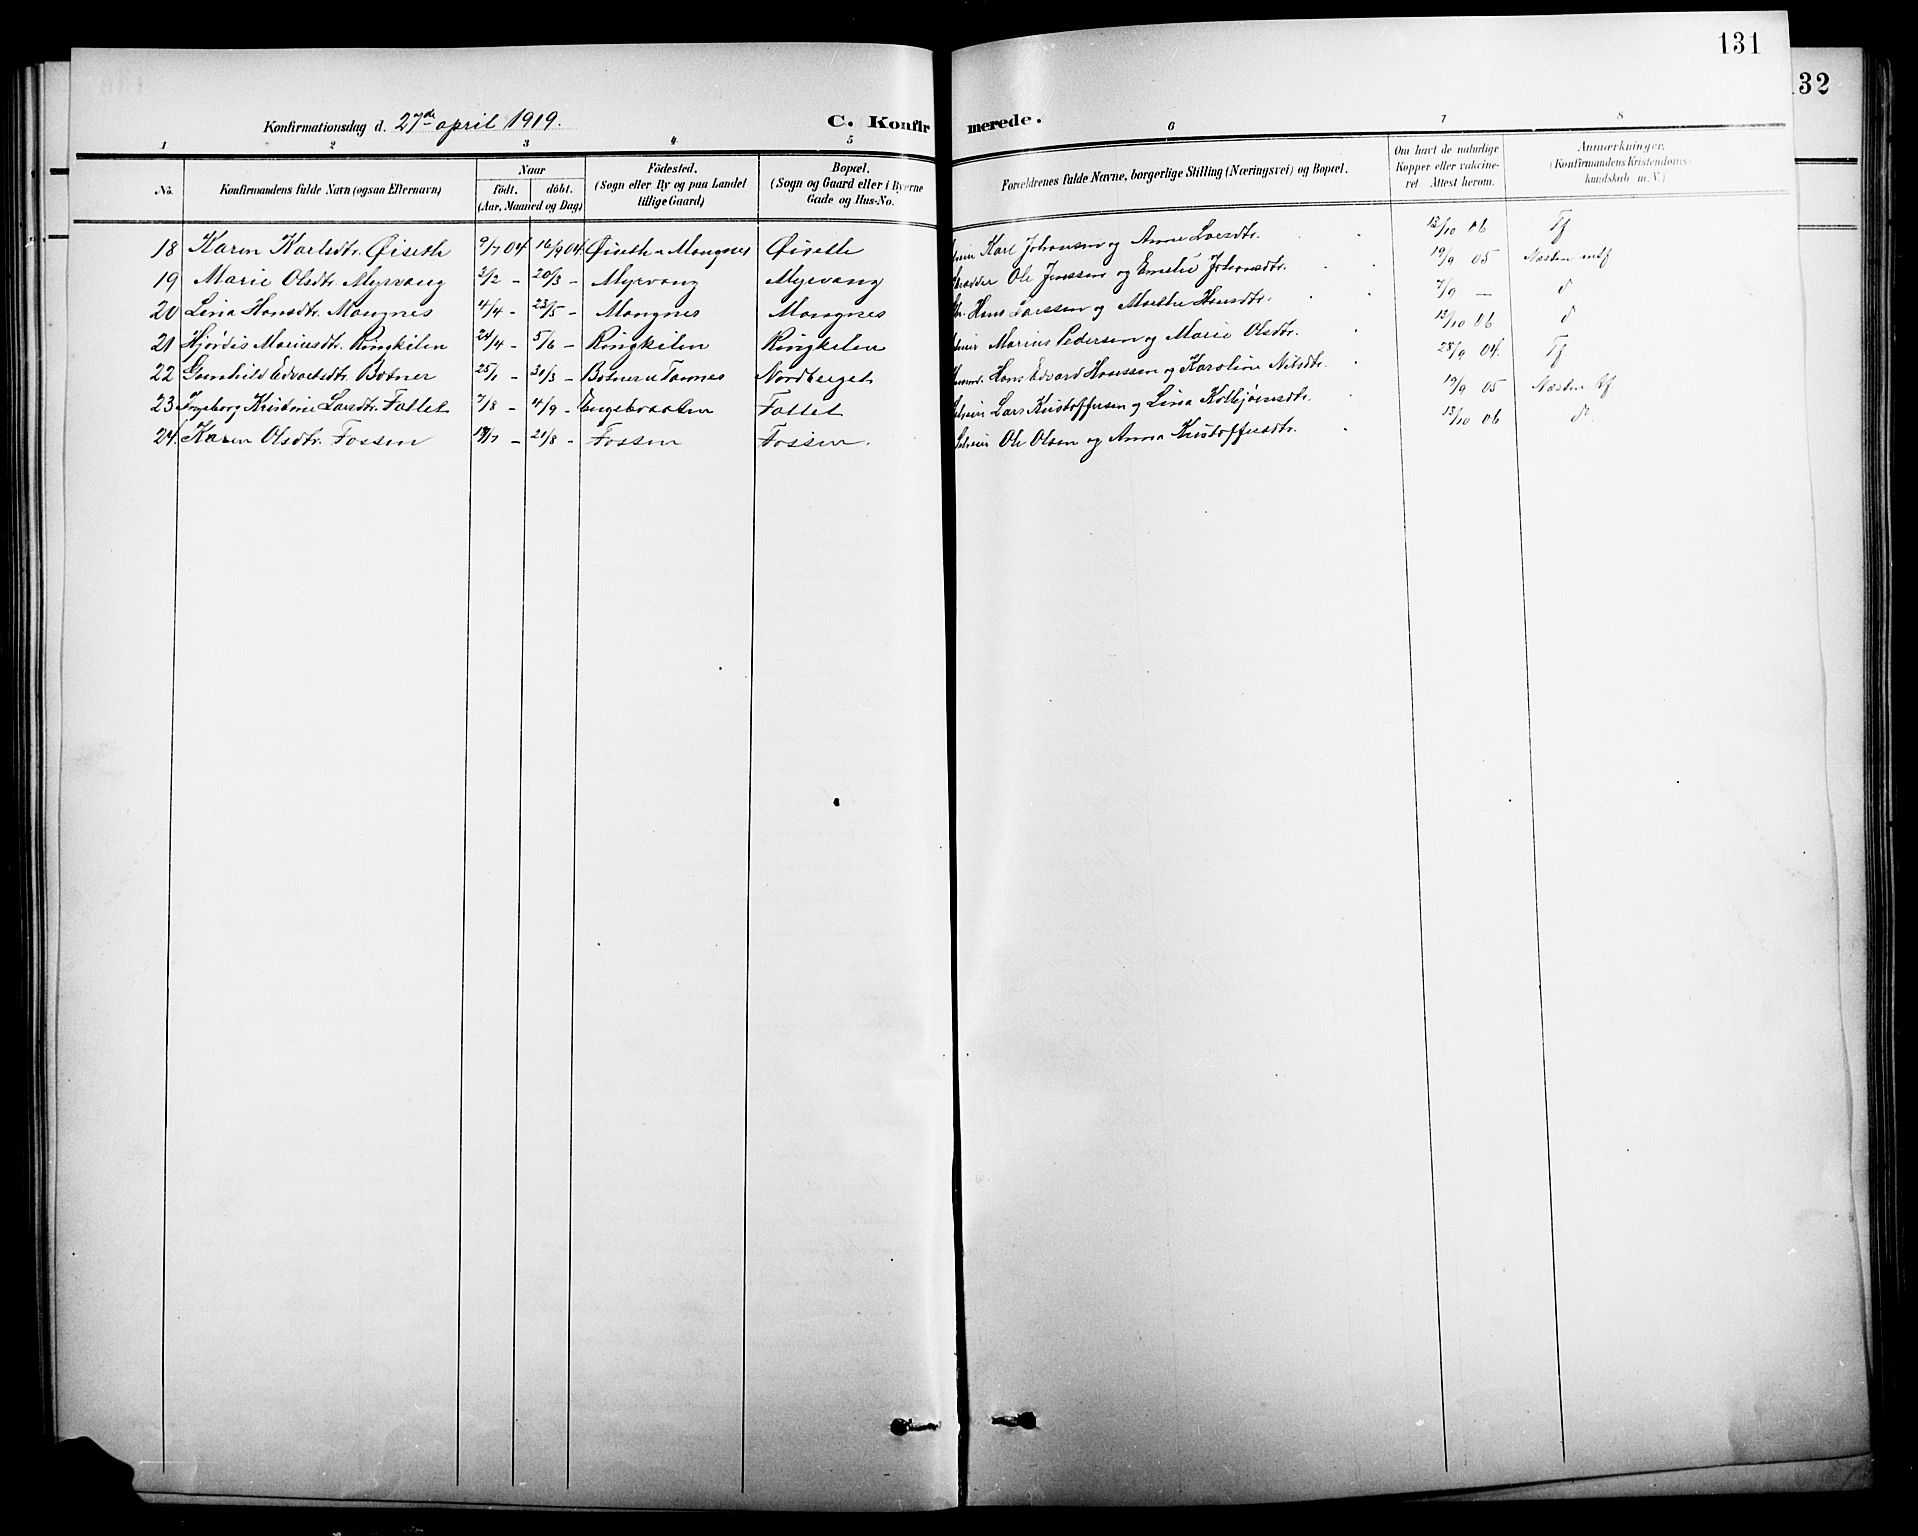 131
32
Konfirmationsdag d. 27de april 1919.
C. Konfirmerede.
1 2 3 4 5 6 7 8
No.
Konfirmandens fulde Navn (ogsaa Efternavn)
Naar
födt. döbt.
(Aar, Maaned og Dag)
Födested.
(Sogn eller By og paa Landet
tillige Gaard)
Bopæl.
(Sogn og Gaard eller i Byerne
Gade og Hus-No.
Forældrenes fulde Navne, borgerlige Stilling (Næringsvei) og Bopæl.
Om havt de naturlige
Kopper eller vakcine-
ret Attest herom.
Anmærkninger.
(Konfirmandens Kristendoms-
kundskab m. V.)
18 Karen Karlsdtr. Øiseth 9/7 04 16/9 04 Øiseth u Mangnes Øiseth Karl Johansen og Anne Larsdtr. 13/10 06 Tf
19 Marie Olsdtr. Myrvang 2/2 – 20/3 – Myrvang Myrvang Ole Jenssen og Emelie Johansdtr. 19/9 05 Næsten mtf
20 Lina Hansdtr. Mangnes 4/4 – 23/5 – Mangnes Mangnes Hans Larssen og Marthe Hansdtr. 7/9 – d
21 Hjördis Mariusdtr. Ringkilen 24/4 – 5/6 – Ringkilen Ringkilen Marius Pedersen og Marie Olsdtr. 13/10 06 d
22 Gunhild Edvardsdtr. Botner 25/1 – 30/3 – Botner u Tannes Nordberget Hans Edvard Hanssen og Karoline Nilsdtr. 28/9 04. Tf
23 Ingeborg Kristine Larsdtr. Fallet 7/8 – 4/9 – Engebraaten Fallet Lars Kristoffersen og Lina Kolbjörnsdtr. 19/9 05 Næsten tf
24 Karen Olsdtr. Fossen 19/7 – 21/8 – Fossen Fossen. Ole Olsen og Anna Kristoffersdtr. 13/10 06 d